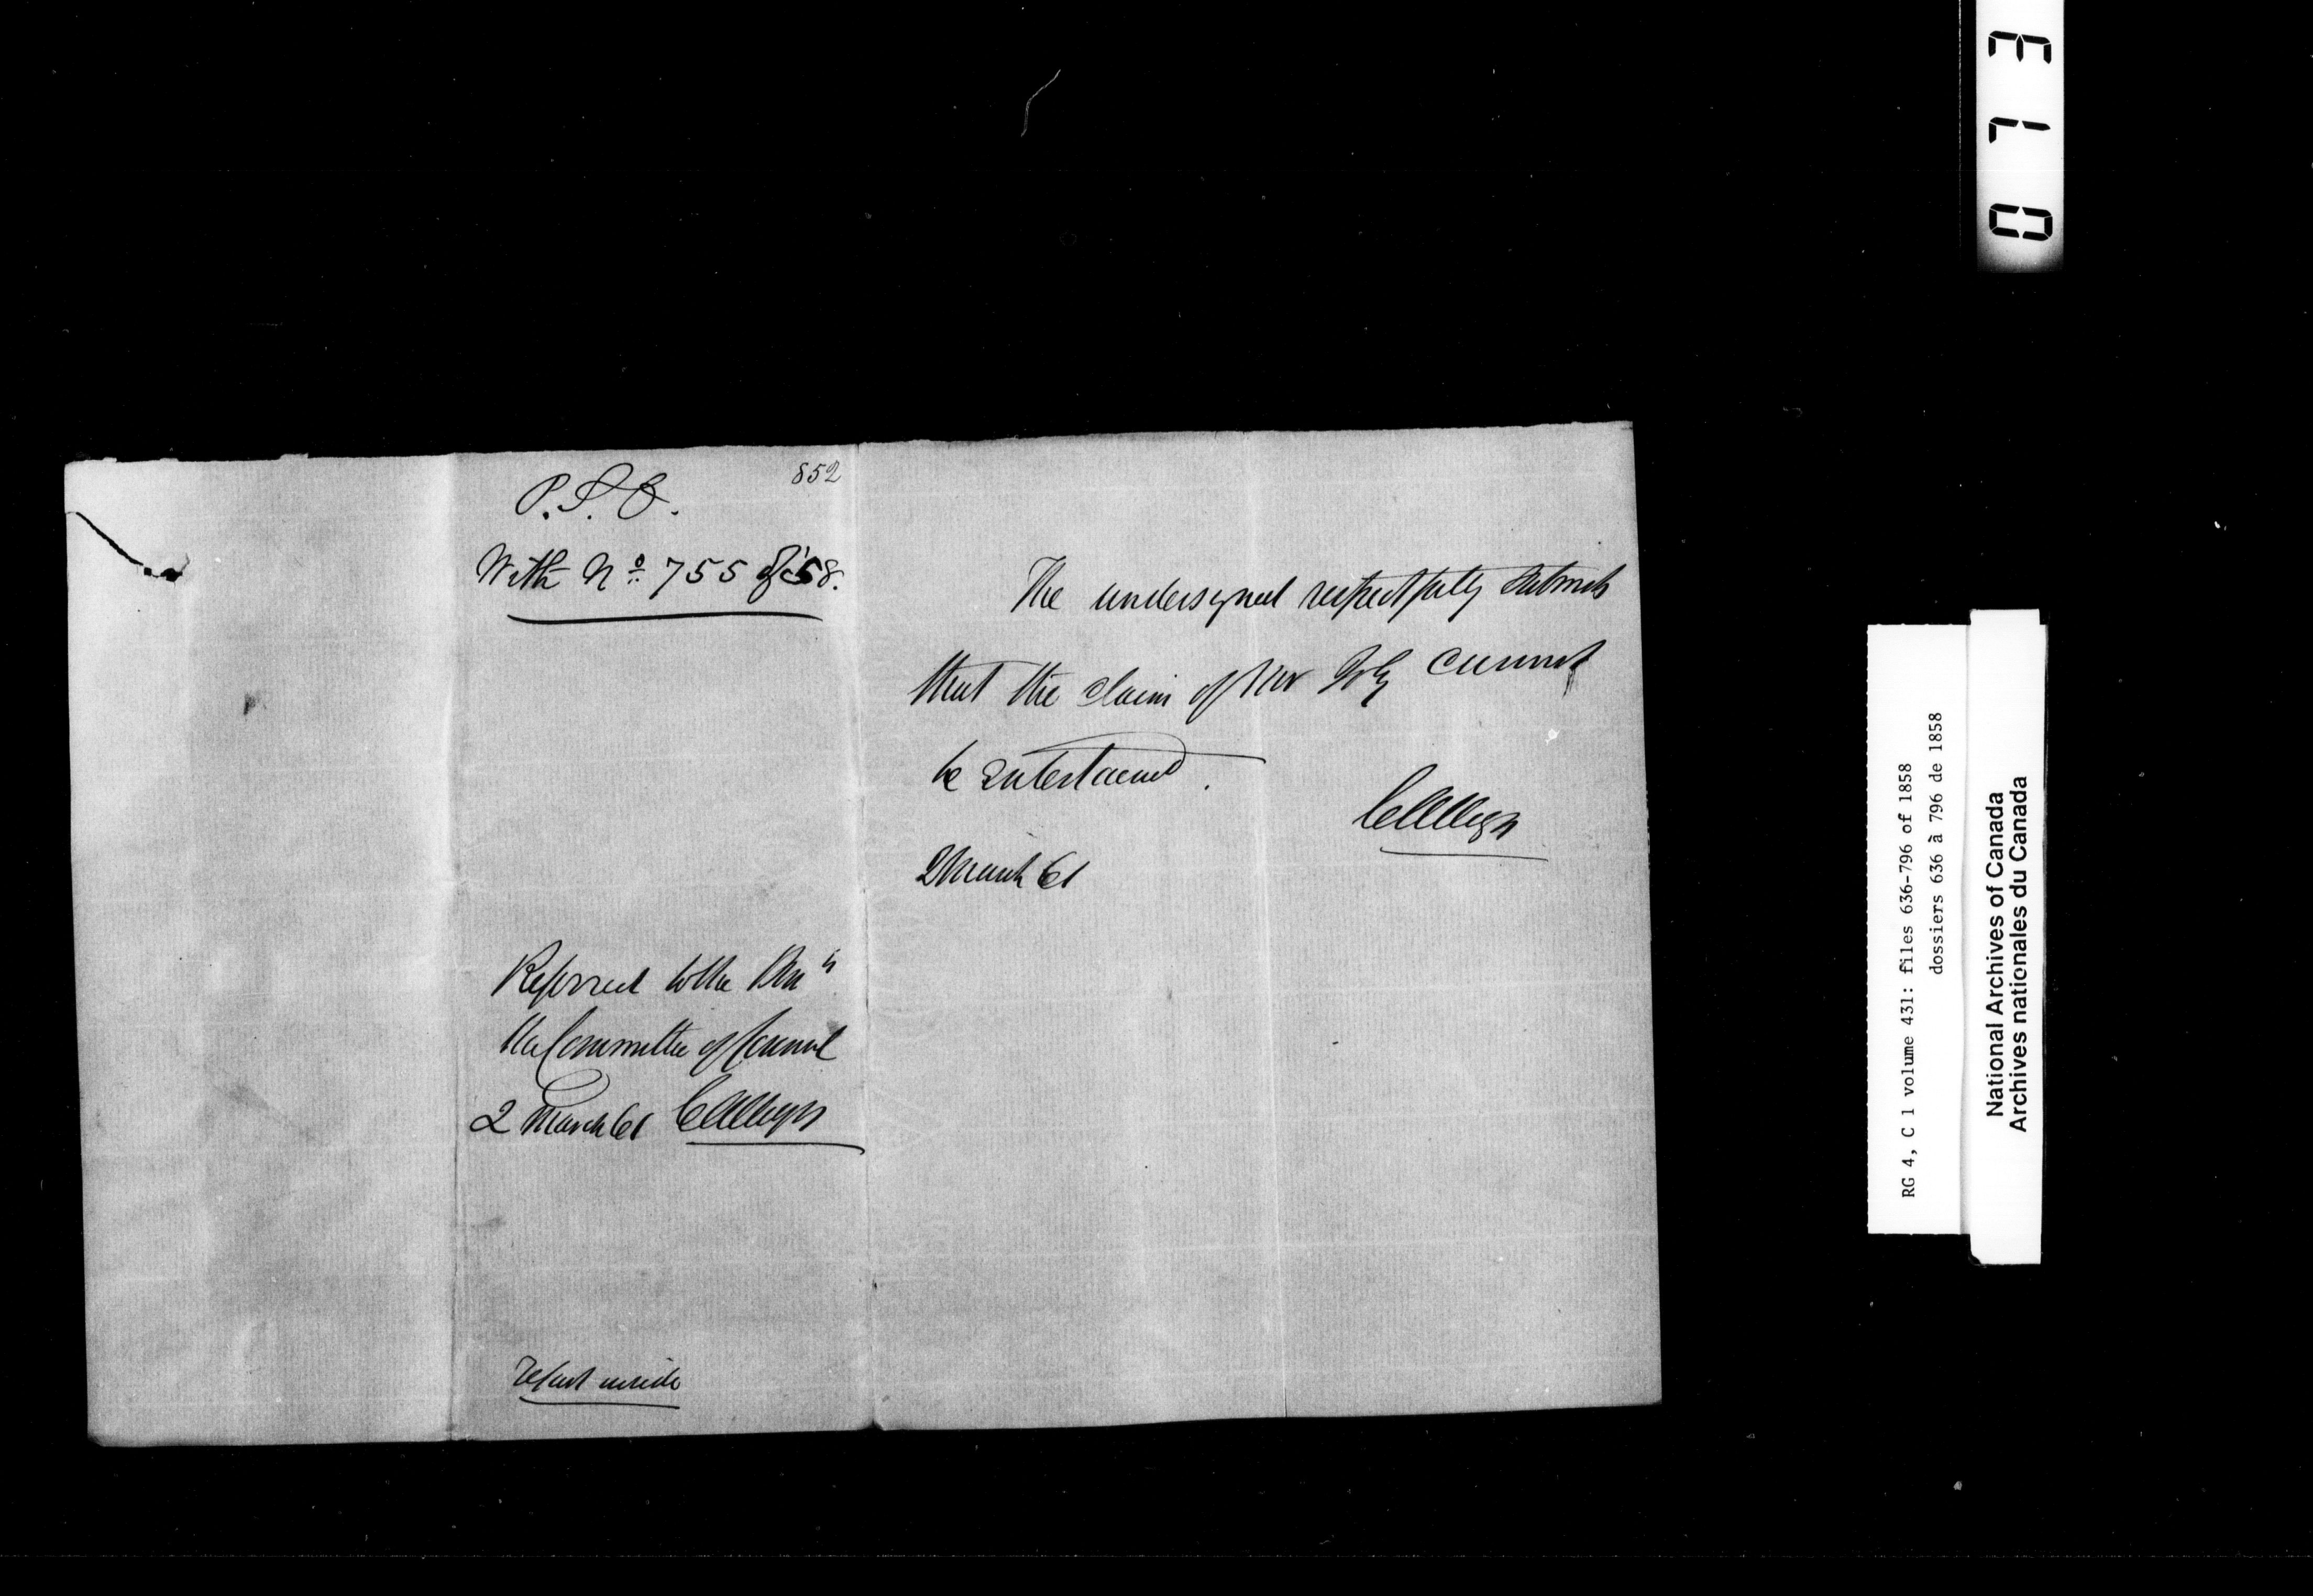 852
P.S.O.
With No. 755 of '58.
Referred to the Honble
the Committee of Council
2 March 61 C Alleyn
Report inside
The undersigned respectfully submits
that the claim of Mr Joly cannot
be entertained.
C Alleyn
2 March 61
0173
RG 4, C 1 volume 431: files 636-796 of 1858
dossiers 636 à 796 de 1858
National Archives of Canada
Archives nationales du Canada